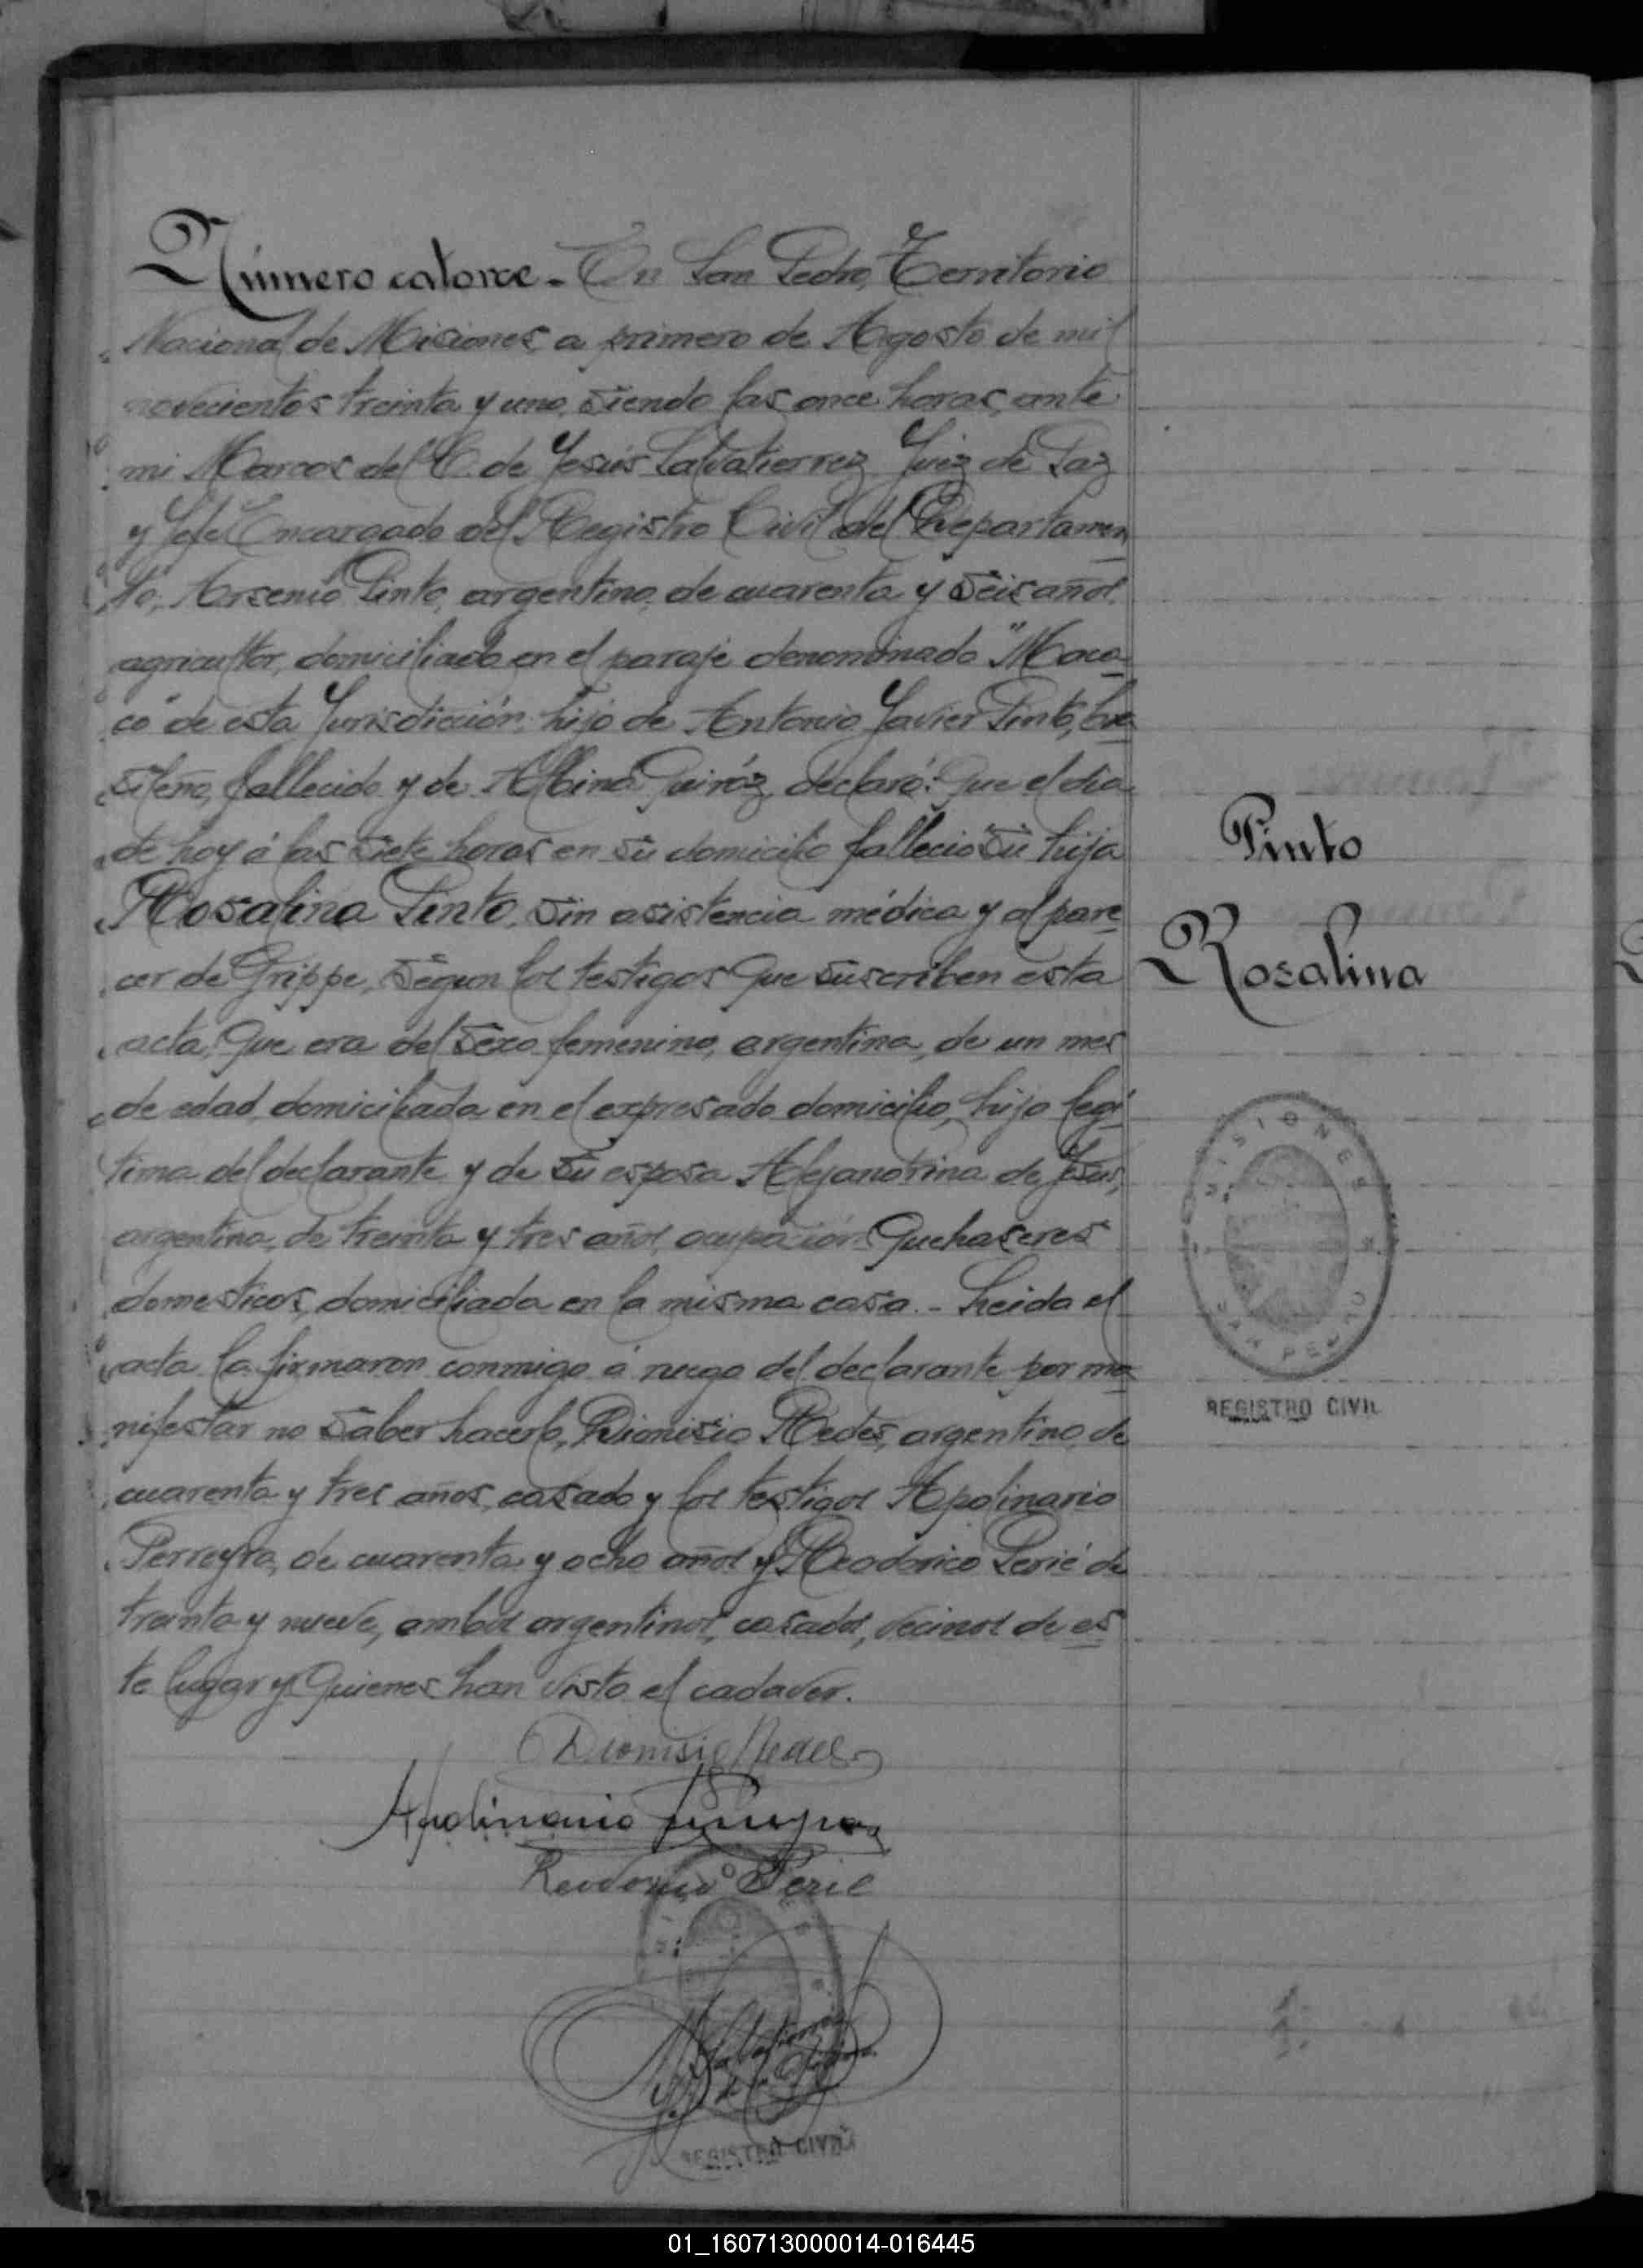 Número catorce.- En San Pedro, Territorio
Nacional de Misiones a primero de Agosto de mil
novecientos treinta y uno, siendo las once horas, ante
mi Marcos del C. de Jesús Salvatierrez Juez de Paz
y Jefe Encargado del Registro Civil del Departamen
to, Arsenio Pinto, argentino, de cuarenta y seis años,
agricultor, domiciliado en el paraje denominado "Maca-
co" de esta Jurisdicción, hijo de Antonio Javier Pinto, bra
sileño, fallecido y de Albina Queiróz, declaró: Que el día
de hoy á las siete horas en su domicilio falleció su hija
Rosalina Pinto, sin asistencia médica y al pare
cer de Grippe, según los testigos que suscriben esta
acta. Que era del sexo femenino, argentina, de un mes
de edad, domiciliada en el expresado domicilio, hija legí
tima del declarante y de su esposa Alejandrina de Jesus,
argentina, de treinta y tres años, ocupación Quehaseres
domesticos, domiciliada en la misma casa.- Leida el
acta la firmaron conmigo á ruego del declarante por ma
nifestar no saber hacerlo, Dionisio Redes, argentino, de
cuarenta y tres años, casado y los testigos Apolinario
Perreyra, de cuarenta y ocho años y Reodorico Perié de
treinta y nueve, ambos argentinos, casados, vecinos de es
te lugar y quienes han visto el cadaver.
Dionisio Redes
Apolinario
Perie
Pinto
Rosalina
MISIONES
SAN PEDRO
REGISTRO CIVIL
REGISTRO CIVIL
01_160713000014-016445